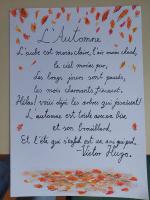 L'Automne
L'aube est moins claire, l'air moins chaud,
le ciel moins pur,
Les longs jours sont passés,
les mois charmants finissent.
Hélas! voici déjà les arbres qui jaunissent!
L'automne est triste avec sa bise
et son brouillard,
Et l'été qui s'enfuit est un ami qui part.
Victor Hugo.